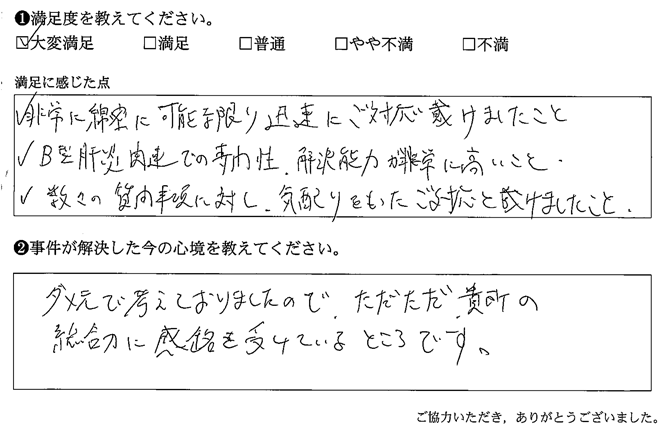 ❶満足度を教えてください。
☑大変満足 □満足 □普通 □やや不満 □不満
満足に感じた点
✓非常に綿密に可能な限り迅速にご対応戴けましたこと
✓B型肝炎関連での専門性、解決能力が非常に高いこと。
✓数々の質問事項に対し、気配りをもったご対応を戴けましたこと。
❷事件が解決した今の心境を教えてください。
ダメ元で考えておりましたので、ただただ、貴所の
総合力に感銘を受けているところです。
ご協力いただき，ありがとうございました。